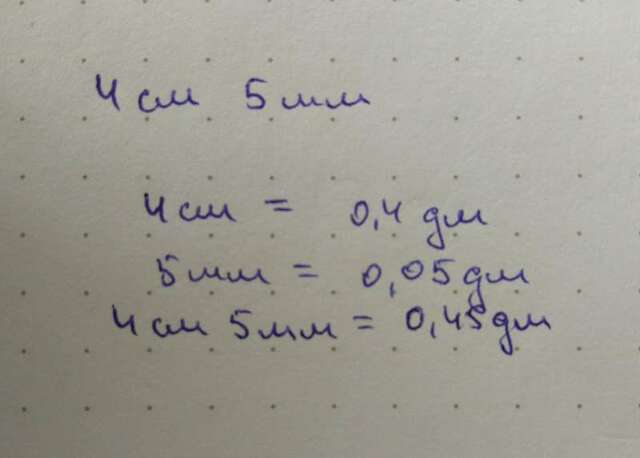 4 см 5 мм
4 см = 0,4 дм
5 мм = 0,05 дм
4 см 5 мм = 0,45 дм